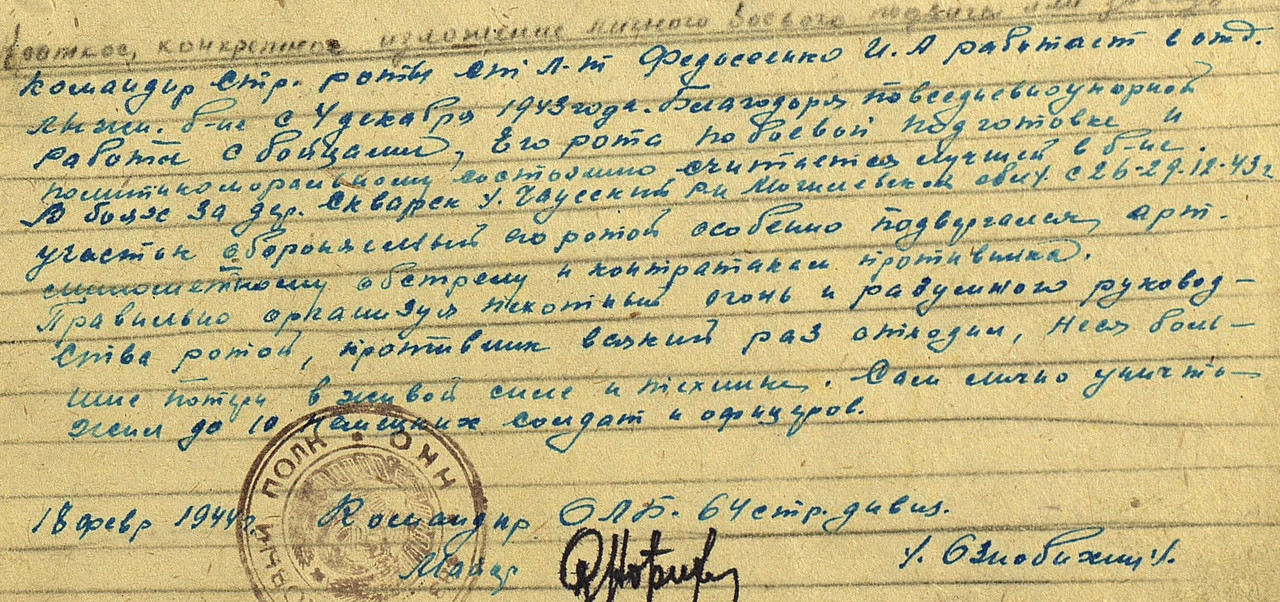 Краткое, конкретное изложение личного боевого подвига или
командир стр. роты ст л-т Федосеенко И. А работает в отд.
лыжн. б-не с 4 декабря 1943 года. Благодаря повседневно упорной
работы с бойцами, Его рота по боевой подготовке и
политикоморальному состоянию считается лучшей в б-не.
В боях за дер. Скварск Чаусский р-н Могилевской обл. с 26-29.12.43 г
участок обороняемый его ротой особенно подвергался арт.
минометному обстрелу и контратакам противника.
Правильно организуя пехотный огонь и разумного руковод-
ства ротой, противник всякий раз отходил, неся боль-
шие потери в живой силе и технике. Сам лично уничто-
жил до 10 немецких солдат и офицеров.
ПОЛК ОНН
18 февр 1944 г. Командир ОЛБ. 64 стр. дивиз.
Майор